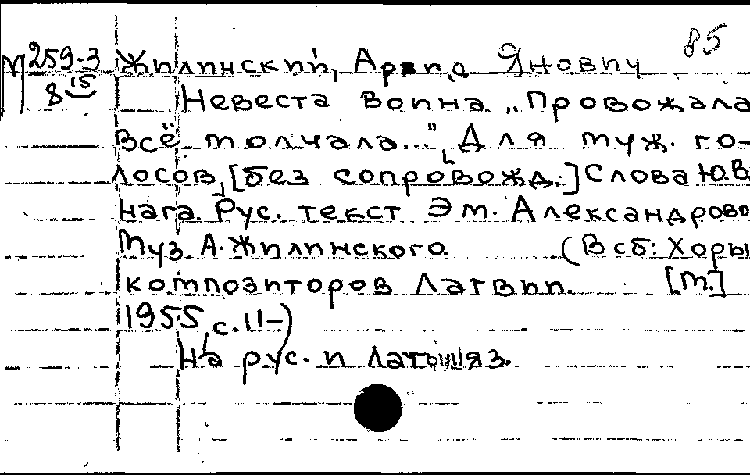 85
М 259-3 Жилинский, Арвид Янович
8 15 Невеста воина „Провожала
всё молчала..." Для муж. го-
лосов, [без сопровожд.] Слова Ю. В
нага. Рус. текст Эм. Александрово
Муз. А. Жилинского. (В сб: Хоры
композиторов Латвии. [М.]
1955, с. 11-)
На рус. и латыш яз.